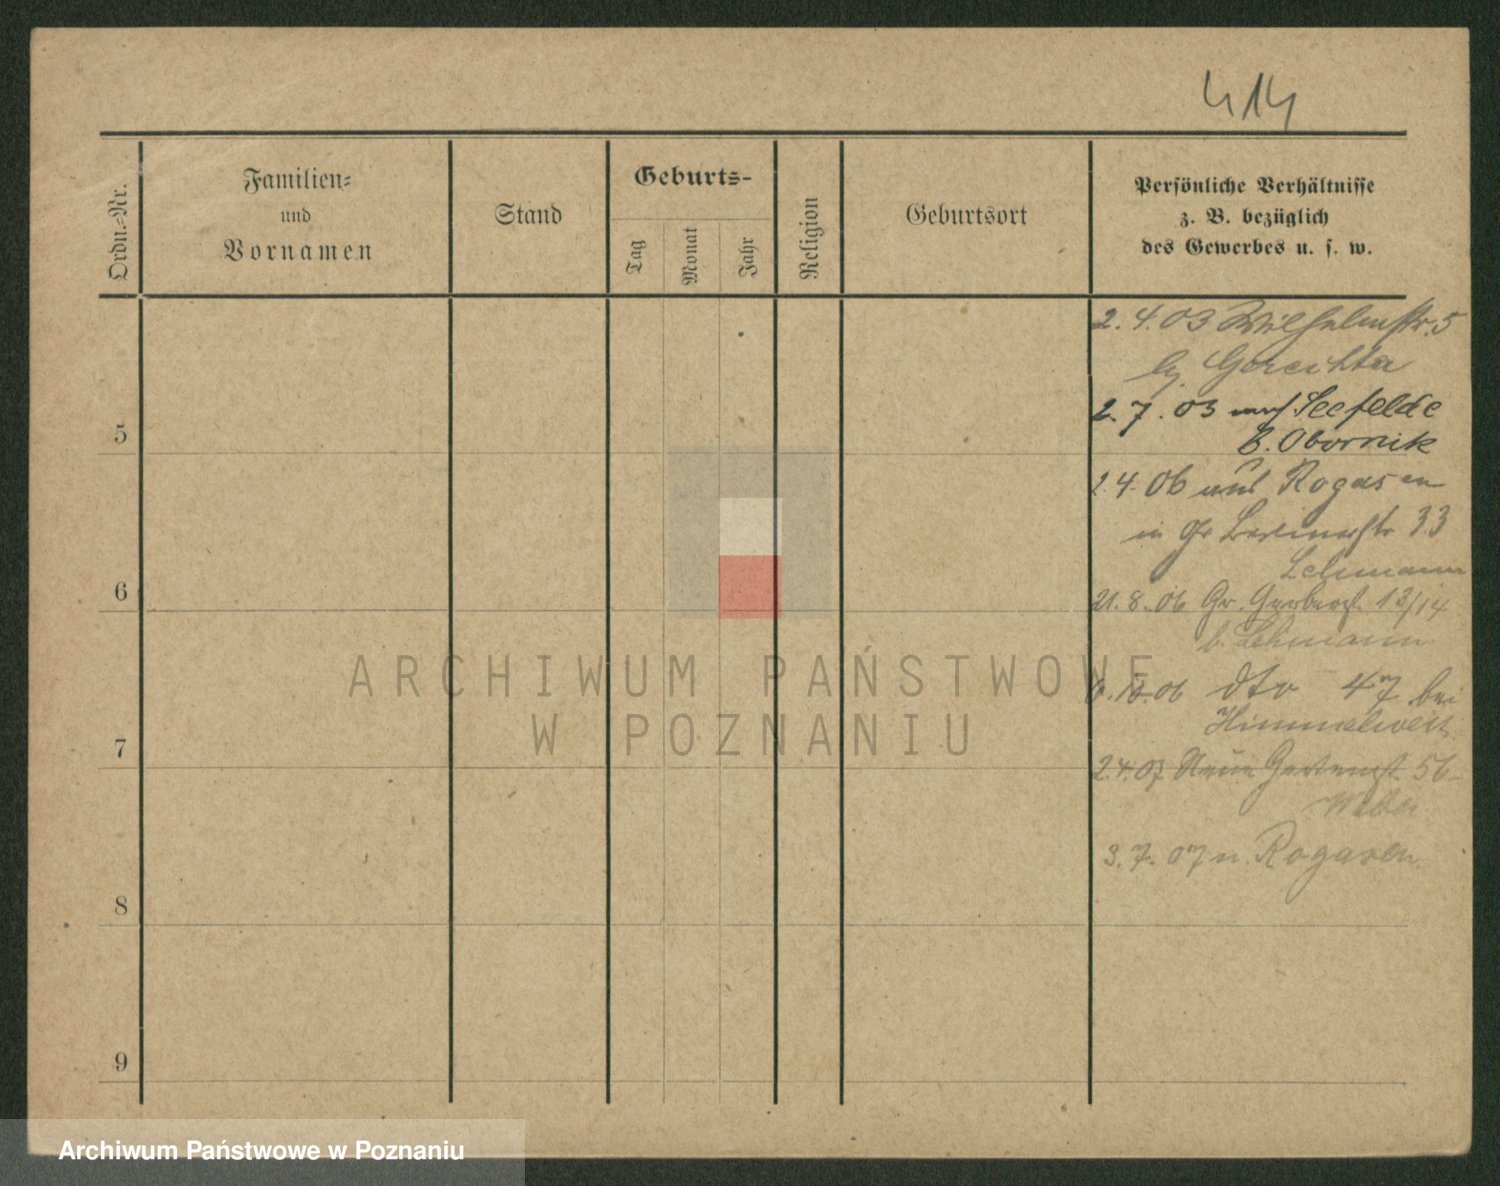 414
Ordn.-Nr.
Familien-
und
Vornamen
Stand
Geburts-
Tag
Monat
Jahr
Religion
Geburtsort
Persönliche Verhältnisse
z. B. bezüglich
des Gewerbes u. s. w.
2.4.03 Wilhelmstr. 5
2.7.03 auf Seefelde
B. Obornik
5
2.4.06 aus Rogasen
in Gr Berlinerstr 33
Lehmann
6
21.8.06 Gr. Gerberst. 13/14
b. Lehmann
ARCHIWUM PAŃSTWOWE
W POZNANIU
06 dto 47 bei
Himmelweit
7
2.4.07 Neue Gartenst. 56
3.7.07 n. Rogasen
8
9
Archiwum Państwowe w Poznaniu